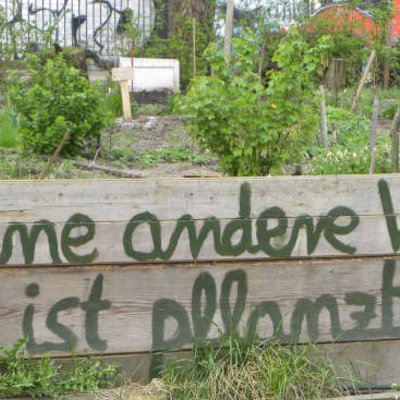 ine andere W
ist pflanzb